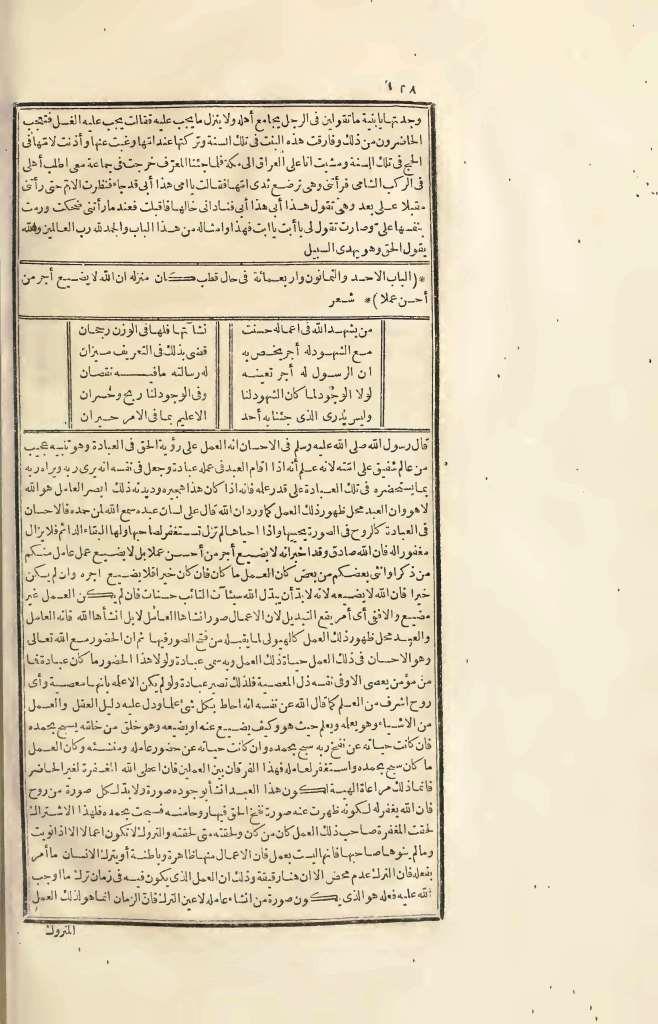 ١٢٨
وجدتها يابنية ما تقولين فى الرجل يجامع أهله ولا ينزل ما يجب عليه فقالت يجب عليه الغسل فتعجب
الحاضرون من ذلك وفارقت هذه البنت فى تلك السنة وتركتها عند امها وغبت عنها وأذنت لامها فى
الحج فى تلك السنة ومشيت أنا على العراق الى مكة فلما جئنا المعرف خرجت فى جماعة معى اطلب أهلى
فى الركب الشامى فرأتنى وهى ترضع ثدى امها فقالت يا امى هذا أبى قد جاء فنظرت الام حتى رأتنى
مقبلا على بعد وهى تقول هذا أبى هذا أبى فنادانى خالها فاقبلت فعندما رأتنى ضحكت ورمت
بنفسها على وصارت تقول لى يا أبت يا ابت فهذا وامثاله من هذا الباب والحمد لله رب العالمين والله
يقول الحق وهو يهدى السبيل
*(الباب الاحد والثمانون واربعمائة فى حال قطب كان منزله ان الله لا يضيع أجر من
أحسن عملا)* شعر
من يشهد الله فى اعماله حسنت نشأتها فلها فى الوزن رجحان
مع الشهود له أجر يخص به قضى بذلك فى التعريف ميزان
ان الرسول له أجر تعينه له رسالته ما فيه نقصان
لولا الوجود لما كان الشهود لنا وفى الوجود لنا ربح وخسران
وليس يدرى الذى جئنا به أحد الا عليم بما فى الامر حيران
قال رسول الله صلى الله عليه وسلم فى الاحسان انه العمل على رؤية الحق فى العبادة وهو تنبيه عجيب
من عالم شفيق على امته لانه علم أنه اذا اقام العبد فى عمله عبادة وجعل فى نفسه انه يرى ربه ويراه ربه
بما يستحضره فى تلك العبادة على قدر علمه فانه اذا كان هذا هجيره وديدنه ذلك ابصر العامل هو الله
لا هو وان العبد محل ظهور ذلك العمل كما ورد ان الله قال على لسان عبده سمع الله لمن حمده فالاحسان
فى العبادة كالروح فى الصورة يحييها واذا احياها لم تزل تستغفر لصاحبها ولها البقاء الدائم فلا يزال
مغفورا له فان الله صادق وقد اخبر انه لا يضيع أجر من أحسن عملا بل لا يضيع عمل عامل منكم
من ذكر او انثى بعضكم من بعض كان العمل ما كان فان كان خيرا فلا يضيع اجره وان لم يكن
خيرا فان الله لا يضيعه لانه لا بد أن يبدل الله سيئات التائب حسنات فان لم يكن العمل غير
مضيع والا ففى أى أمر يقع التبديل لان الاعمال صور انشأها العامل لا بل انشأها الله فانه العامل
والعبد محل ظهور ذلك العمل كالهيولى لما يقبله من فتح الصور فيها ثم ان الحضور مع الله تعالى
وهو الاحسان فى ذلك العمل حياة ذلك العمل وبه سمى عبادة ولولا هذا الحضور ما كان عبادة فما
من مؤمن يعصى الا وفى نفسه ذل المعصية فلذلك تصير عبادة ولو لم يكن الا علمه بانها معصية وأى
روح اشرف من العلم كما قال الله عن نفسه انه احاط بكل شئ علما ودل عليه دليل العقل والعمل
من الاشياء وهو يعلمه ويعلم حيث هو وكيف يضيع عنه او يضيعه وهو خلق من خلقه يسبح بحمده
فان كانت حياته عن نفخ ربه سبح بحمده وان كانت حياته عن حضور عامله ومنشئه وكان العمل
ما كان سبح بحمده واستغفر لعامله فهذا الفرقان بين العملين فان اعطى الله المغفرة لغير الحاضر
فانما ذلك مراعاة الهية لكون هذا العبد انشأ بوجوده صورة ولا بد لكل صورة من روح
فان الله يغفر له لكونه ظهرت عنه صورة نفخ الحق فيها روحا منه فسبحت بحمده فلهذا الاشتراك
لحقت المغفرة صاحب ذلك العمل كان من كان ولحقته متى لحقته والتروك لا تكون اعمالا الا اذا نويت
وما لم ينوها صاحبها فانها ليست بعمل فان الاعمال منها ظاهرة وباطنة أو يترك الانسان ما أمر
بفعله فان الترك عدم محض الا ان هنا رقيقة وذلك ان العمل الذى يكون فيه فى زمان ترك ما اوجب
الله عليه فعله هو الذى يكون صورة من انشاء عامله لا عين الترك فان الزمان انما هو لذلك العمل
المتروك